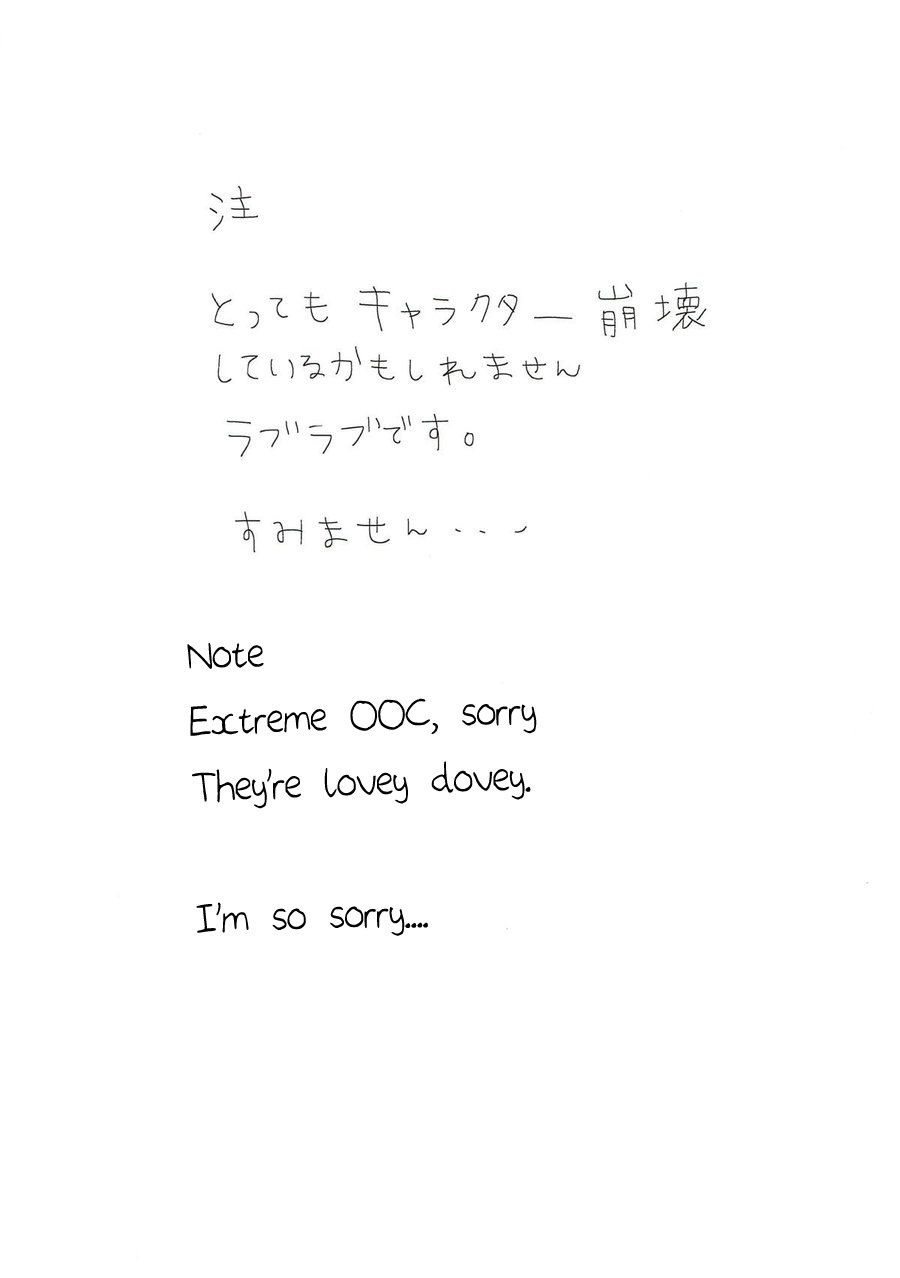 注
とっても キャラクター 崩壊
しているかもしれません
ラブラブです。
すみません・・・
Note
Extreme OOC, sorry
They're lovey dovey.
I'm so sorry....